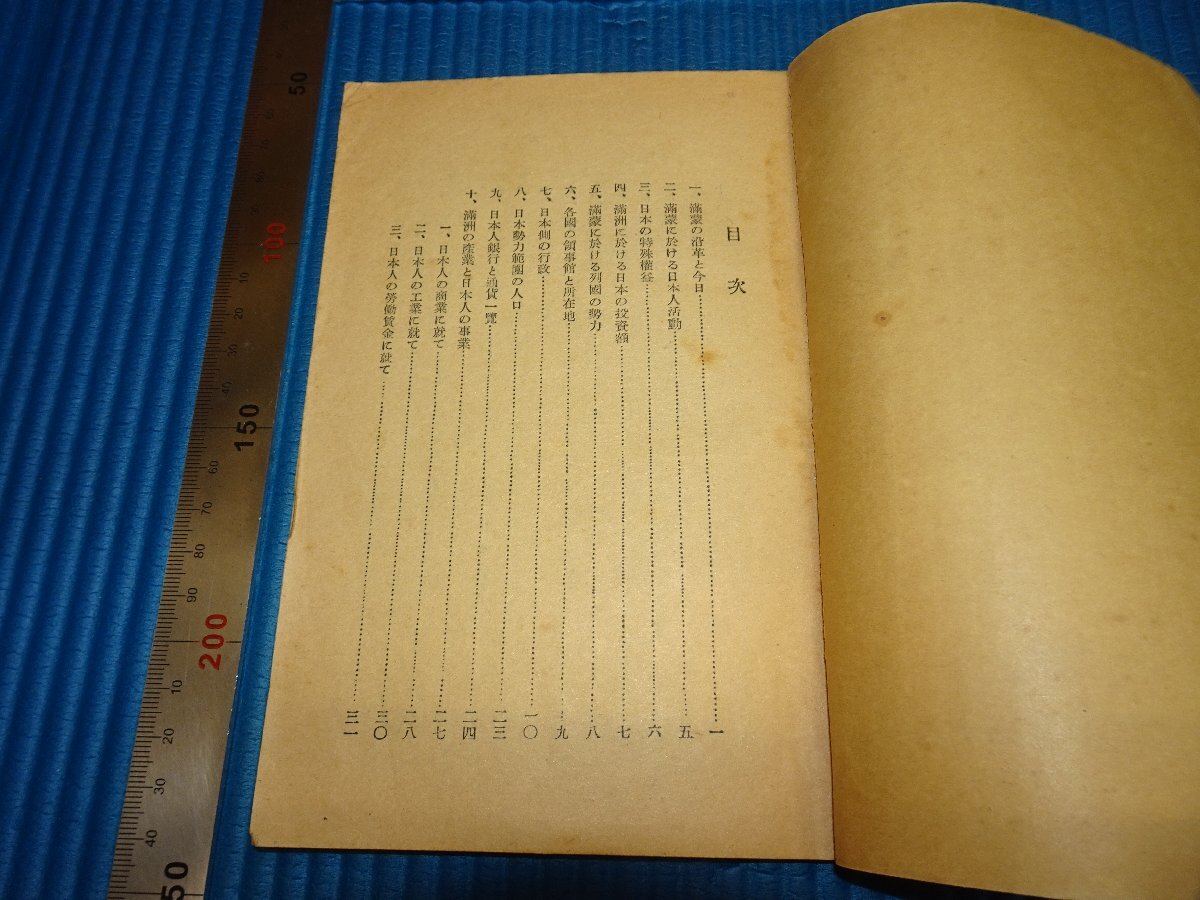 目次
一、滿蒙の沿革と今日……一
二、滿蒙に於ける日本人活動……五
三、日本の特殊權益……六
四、滿洲に於ける日本の投資額……七
五、滿蒙に於ける列國の勢力……八
六、各國の領事館と所在地……九
七、日本側の行政……一〇
八、日本勢力範圍の人口……二三
九、日本人銀行と通貨一覽……二四
十、滿洲の産業と日本人の事業……二七
一、日本人の商業に就て……二八
二、日本人の工業に就て……三〇
三、日本人の勞働賃金に就て……三一
50
60
70
80
90
100
10
20
30
40
150
60
70
80
90
200
10
20
30
40
50